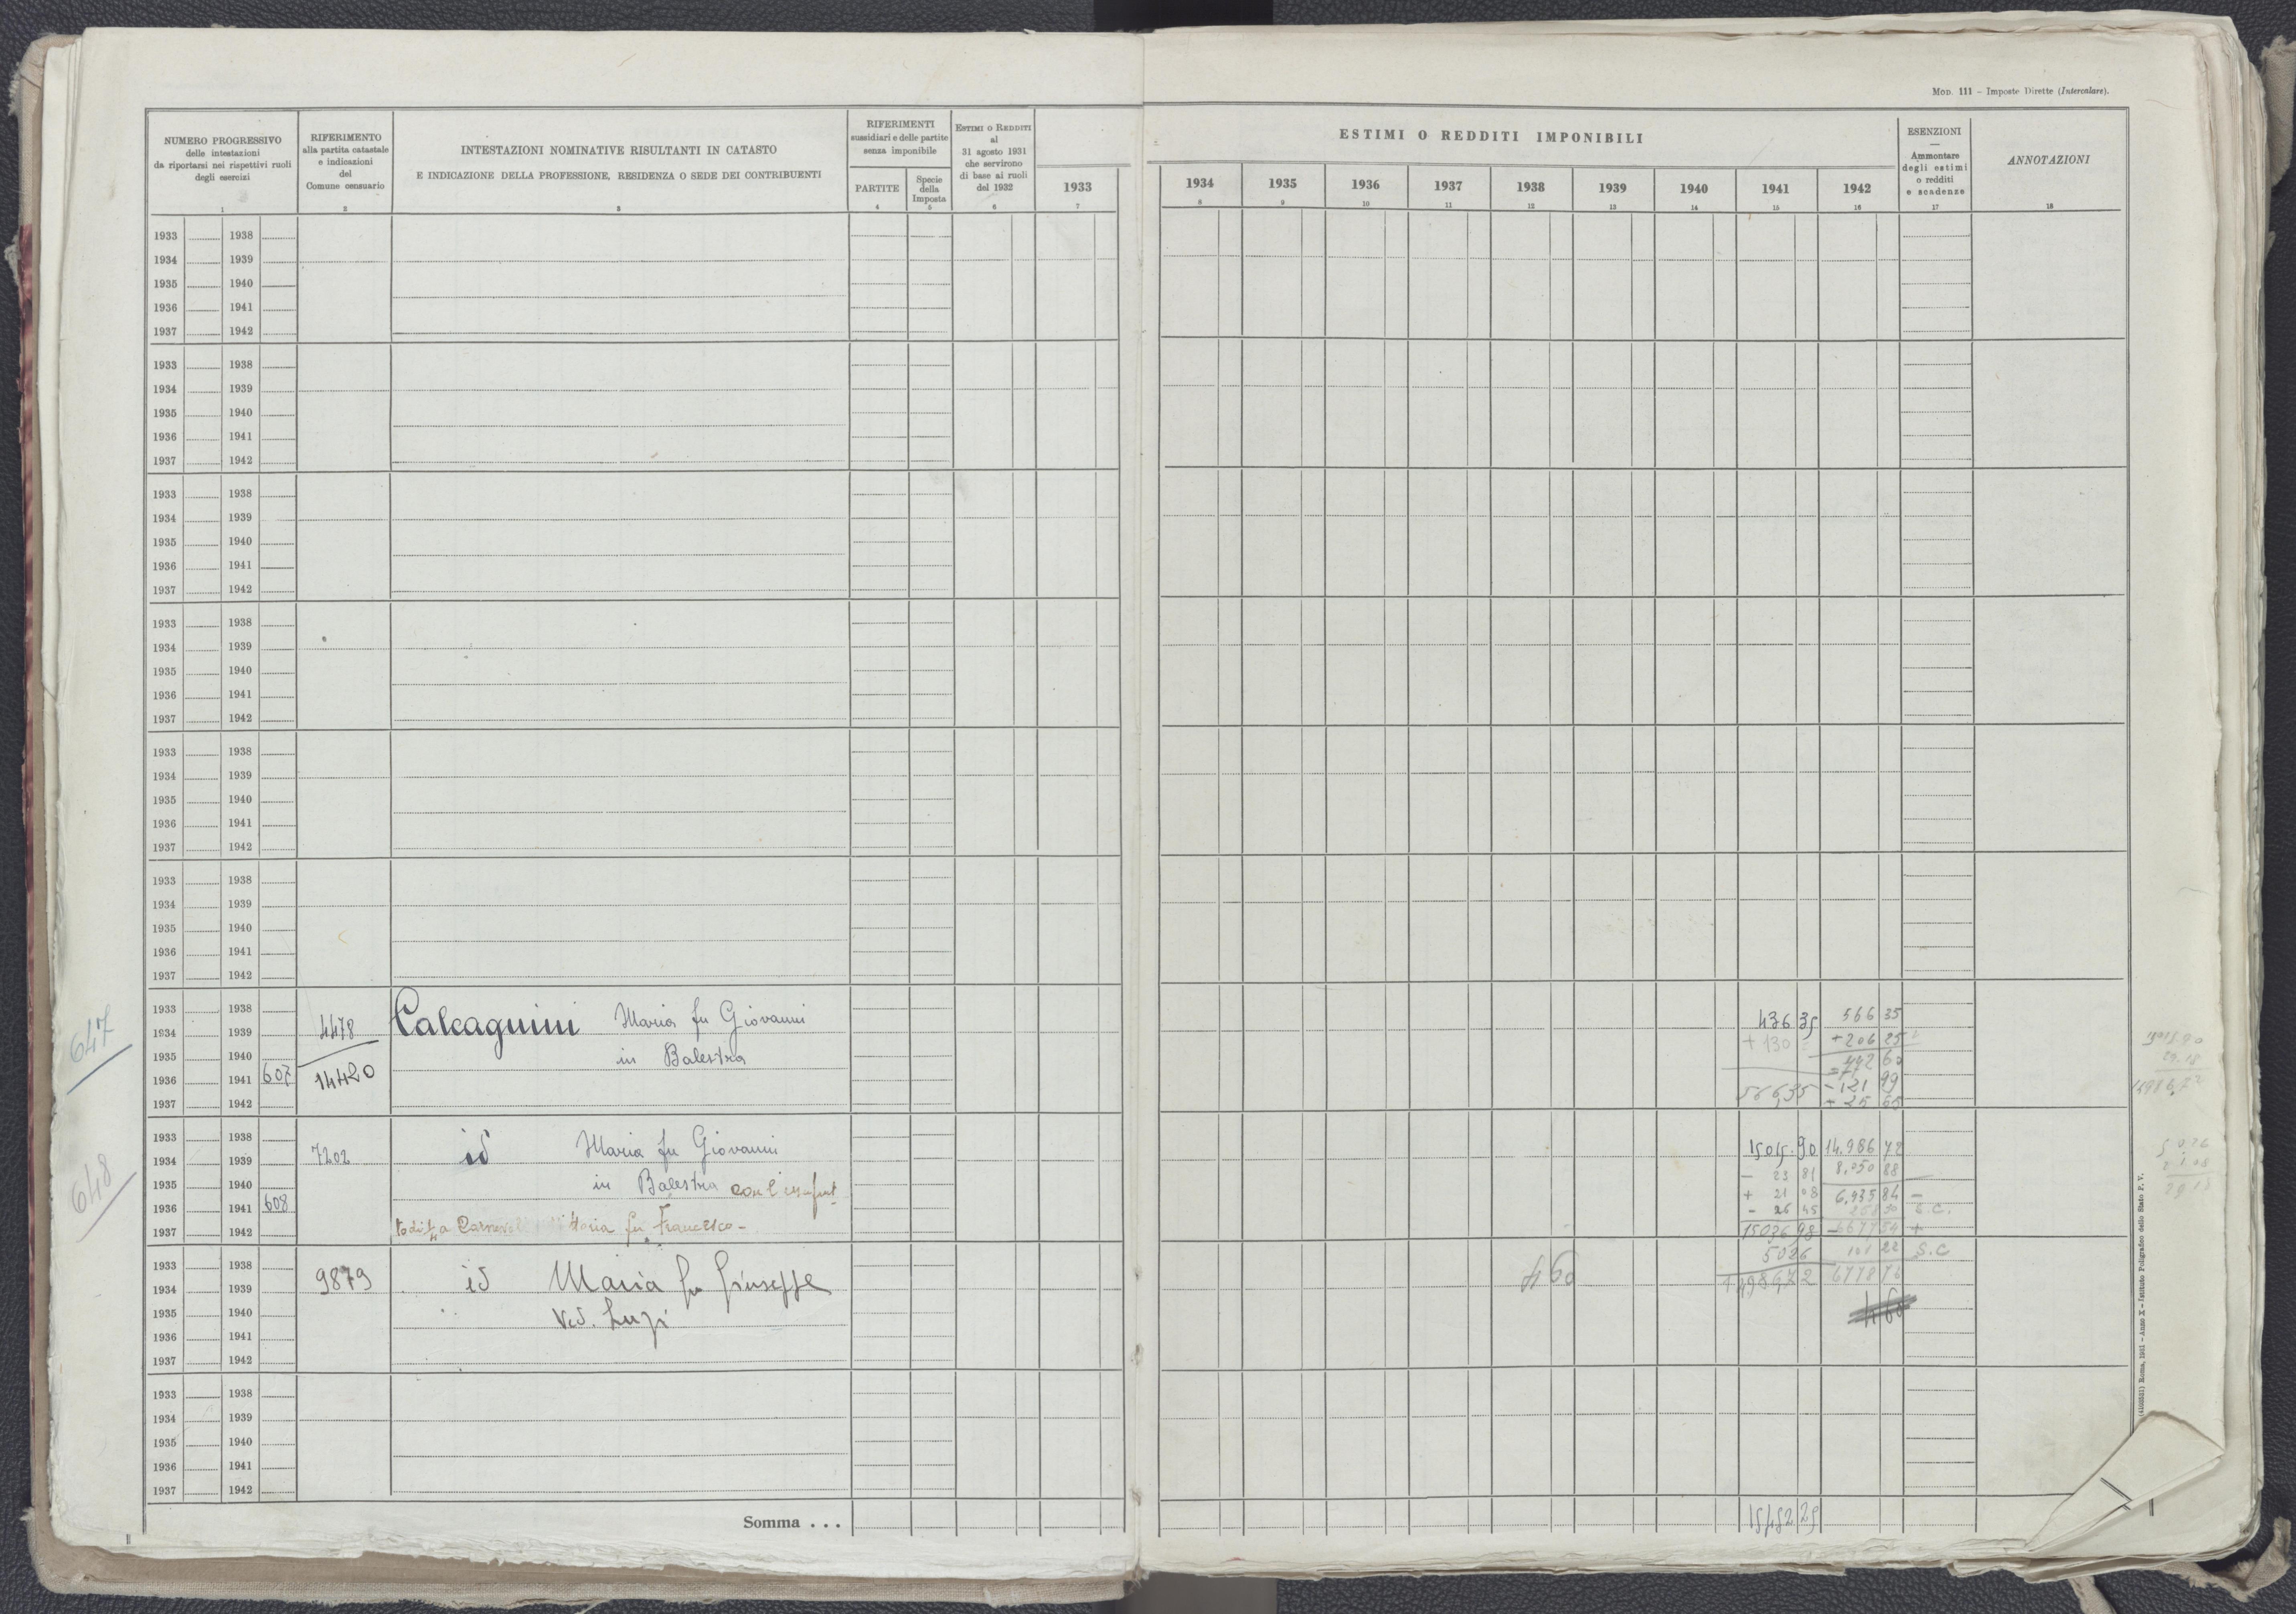 Mod. 111 – Imposte Dirette (Intercalare).
NUMERO PROGRESSIVO
delle intestazioni
da riportarsi nei rispettivi ruoli
degli esercizi
1
RIFERIMENTO
alla partita catastale
e indicazioni
del
Comune censuario
2
INTESTAZIONI NOMINATIVE RISULTANTI IN CATASTO
E INDICAZIONE DELLA PROFESSIONE, RESIDENZA O SEDE DEI CONTRIBUENTI
3
RIFERIMENTI
sussidiari e delle partite
senza imponibile
PARTITE
4
Specie
della
Imposta
5
Estimi o Redditi
al
31 agosto 1931
che servirono
di base ai ruoli
del 1932
6
1933
7
ESTIMI O REDDITI IMPONIBILI
1934 1935 1936 1937 1938 1939 1940 1941 1942
8 9 10 11 12 13 14 15 16
ESENZIONI
—
Ammontare
degli estimi
o redditi
e scadenze
17
ANNOTAZIONI
18
1933 1938
1934 1939
1935 1940
1936 1941
1937 1942
1933 1938
1934 1939
1935 1940
1936 1941
1937 1942
1933 1938
1934 1939
1935 1940
1936 1941
1937 1942
1933 1938
1934 1939
1935 1940
1936 1941
1937 1942
1933 1938
1934 1939
1935 1940
1936 1941
1937 1942
1933 1938
1934 1939
1935 1940
1936 1941
1937 1942
647
1933 1938
1934 1939 4478 Calcagnini Maria fu Giovanni 436 35 566 35
1935 1940 in Balestra + 130 + 206 25
1936 1941 607 14420
1937 1942 566,35 - 121 99
648
1933 1938
1934 1939 7202 id Maria fu Giovanni 15015.90 14.986 72
1935 1940 in Balestra con l'usufrut - 23 81 8,050 88
1936 1941 608 + 21 08 6,935 84 -
to di Maria fu Francesco - - 26 45
1937 1942 15036 98 +
1933 1938 5026 101 22 S.C
1934 1939 9879 id Maria fu Giuseppe 460 14986,72 6778 76
1935 1940 Ved. Lupi 460
1936 1941
1937 1942
1933 1938
1934 1939
1935 1940
1936 1941
1937 1942
Somma . . . 15452 25
15015.90
29.18
14986,72
50,26
21 08
29 18
(4103551) Roma, 1931 – Anno X – Istituto Poligrafico dello Stato P. V.